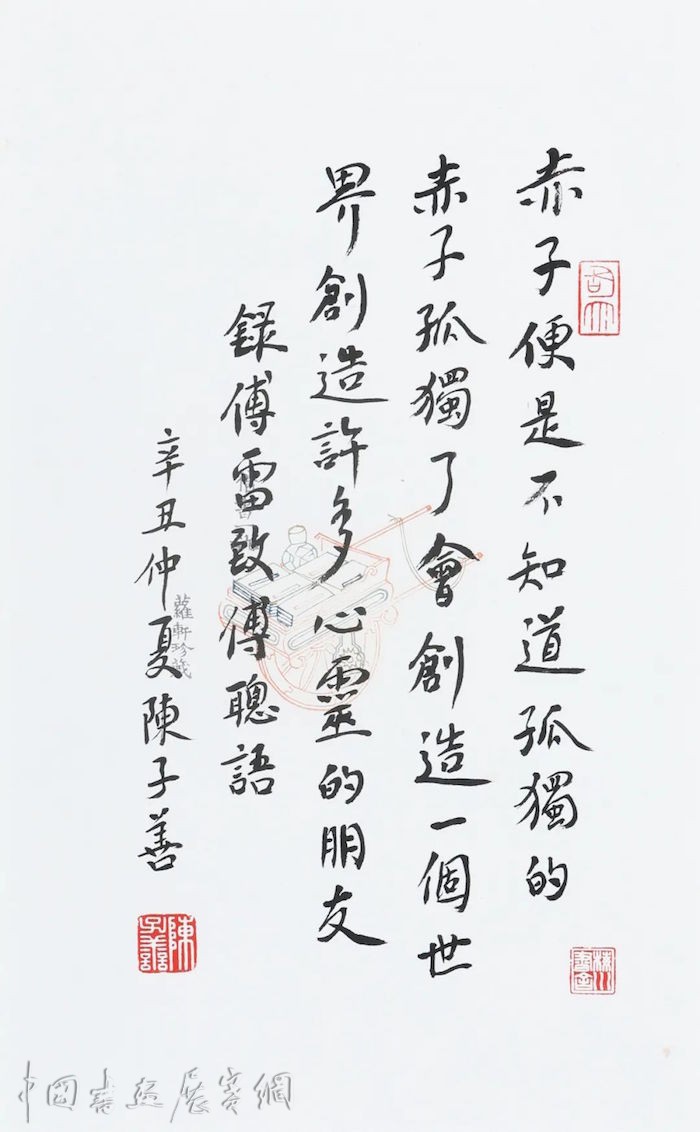 赤子便是不知道孤獨的
赤子孤獨了會創造一個世
界創造許多心靈的朋友
錄傅雷致傅聰語
辛丑仲夏陳子善
陳子善
蘿軒珍藏
中國書畫展賽網